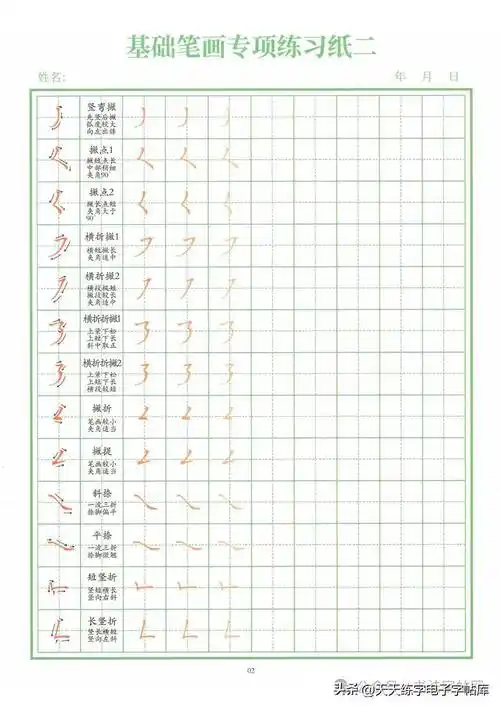 基础笔画专项练习纸二
姓名:
年 月 日
竖弯撇
先竖后撇
弧度较大
向左出锋
撇点1
撇短点长
中部稍细
夹角90
撇点2
撇长点短
夹角大于
90
横折撇1
横短撇长
夹角适中
横折撇2
横段极短
撇段较长
夹角适中
横折折撇1
上紧下松
上短下长
斜中取正
横折折撇2
上紧下松
上短下长
横段较短
撇折
笔画较小
夹角适当
撇提
笔画较小
夹角适当
斜捺
一波三折
捺脚偏平
平捺
一波三折
捺脚微翘
短竖折
竖短横长
竖向右斜
长竖折
竖长横短
竖向左斜
02
头条 @天天练字电子字帖库